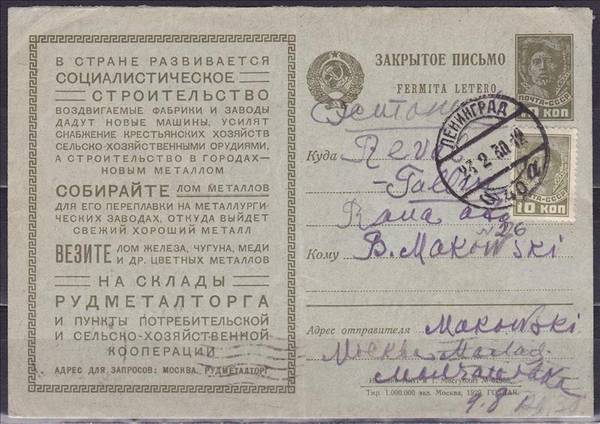 В СТРАНЕ РАЗВИВАЕТСЯ
СОЦИАЛИСТИЧЕСКОЕ
СТРОИТЕЛЬСТВО
ВОЗДВИГАЕМЫЕ ФАБРИКИ И ЗАВОДЫ
ДАДУТ НОВЫЕ МАШИНЫ, УСИЛЯТ
СНАБЖЕНИЕ КРЕСТЬЯНСКИХ ХОЗЯЙСТВ
СЕЛЬСКО-ХОЗЯЙСТВЕННЫМИ ОРУДИЯМИ,
А СТРОИТЕЛЬСТВО В ГОРОДАХ-
НОВЫМ МЕТАЛЛОМ
СОБИРАЙТЕ ЛОМ МЕТАЛЛОВ
ДЛЯ ЕГО ПЕРЕПЛАВКИ НА МЕТАЛЛУРГИ-
ЧЕСКИХ ЗАВОДАХ, ОТКУДА ВЫЙДЕТ
СВЕЖИЙ ХОРОШИЙ МЕТАЛЛ
ВЕЗИТЕ ЛОМ ЖЕЛЕЗА, ЧУГУНА, МЕДИ
И ДР. ЦВЕТНЫХ МЕТАЛЛОВ
НА СКЛАДЫ
РУДМЕТАЛТОРГА
И ПУНКТЫ ПОТРЕБИТЕЛЬСКОЙ
И СЕЛЬСКО-ХОЗЯЙСТВЕННОЙ
КООПЕРАЦИИ
АДРЕС ДЛЯ ЗАПРОСОВ: МОСКВА, РУДМЕТАЛТОРГ
ЗАКРЫТОЕ ПИСЬМО
FERMITA LETERO
ПОЧТА-СССР
КОП
ЛЕНИНГРАД
23.2.30
ПОЧТА-СССР
10 КОП
Куда
Reval
26
Кому B. Makowski
Адрес отправителя Makowski
Москва
Тир. 1.000.000 экз. Москва, 1929